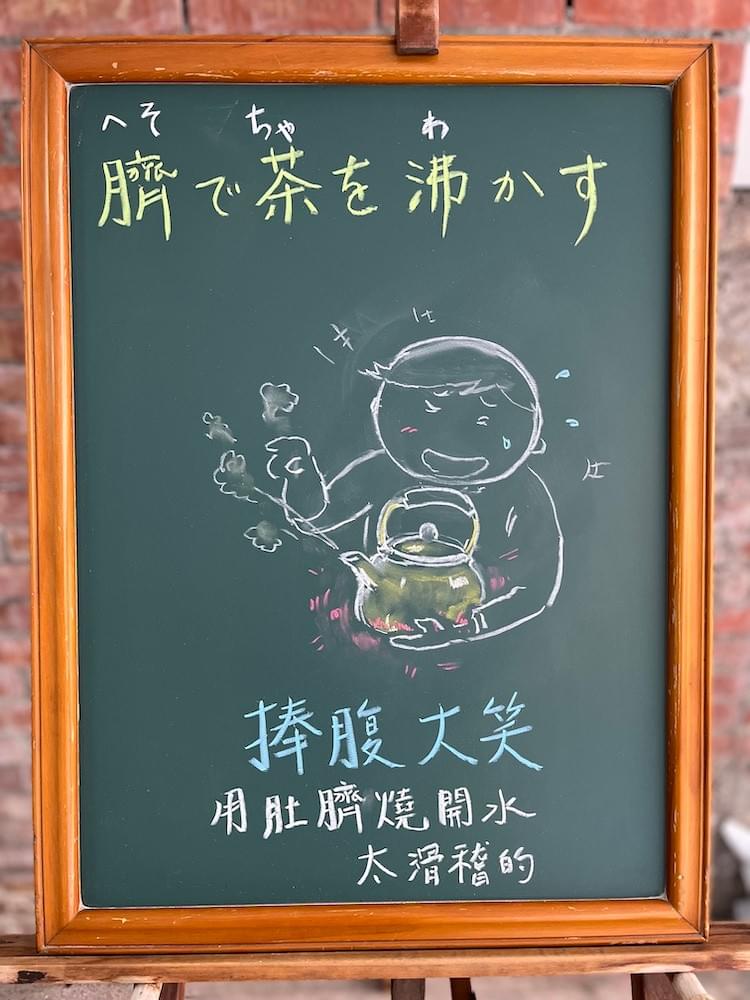 へそ ちゃ わ
臍で茶を沸かす
捧腹大笑
用肚臍燒開水
太滑稽的